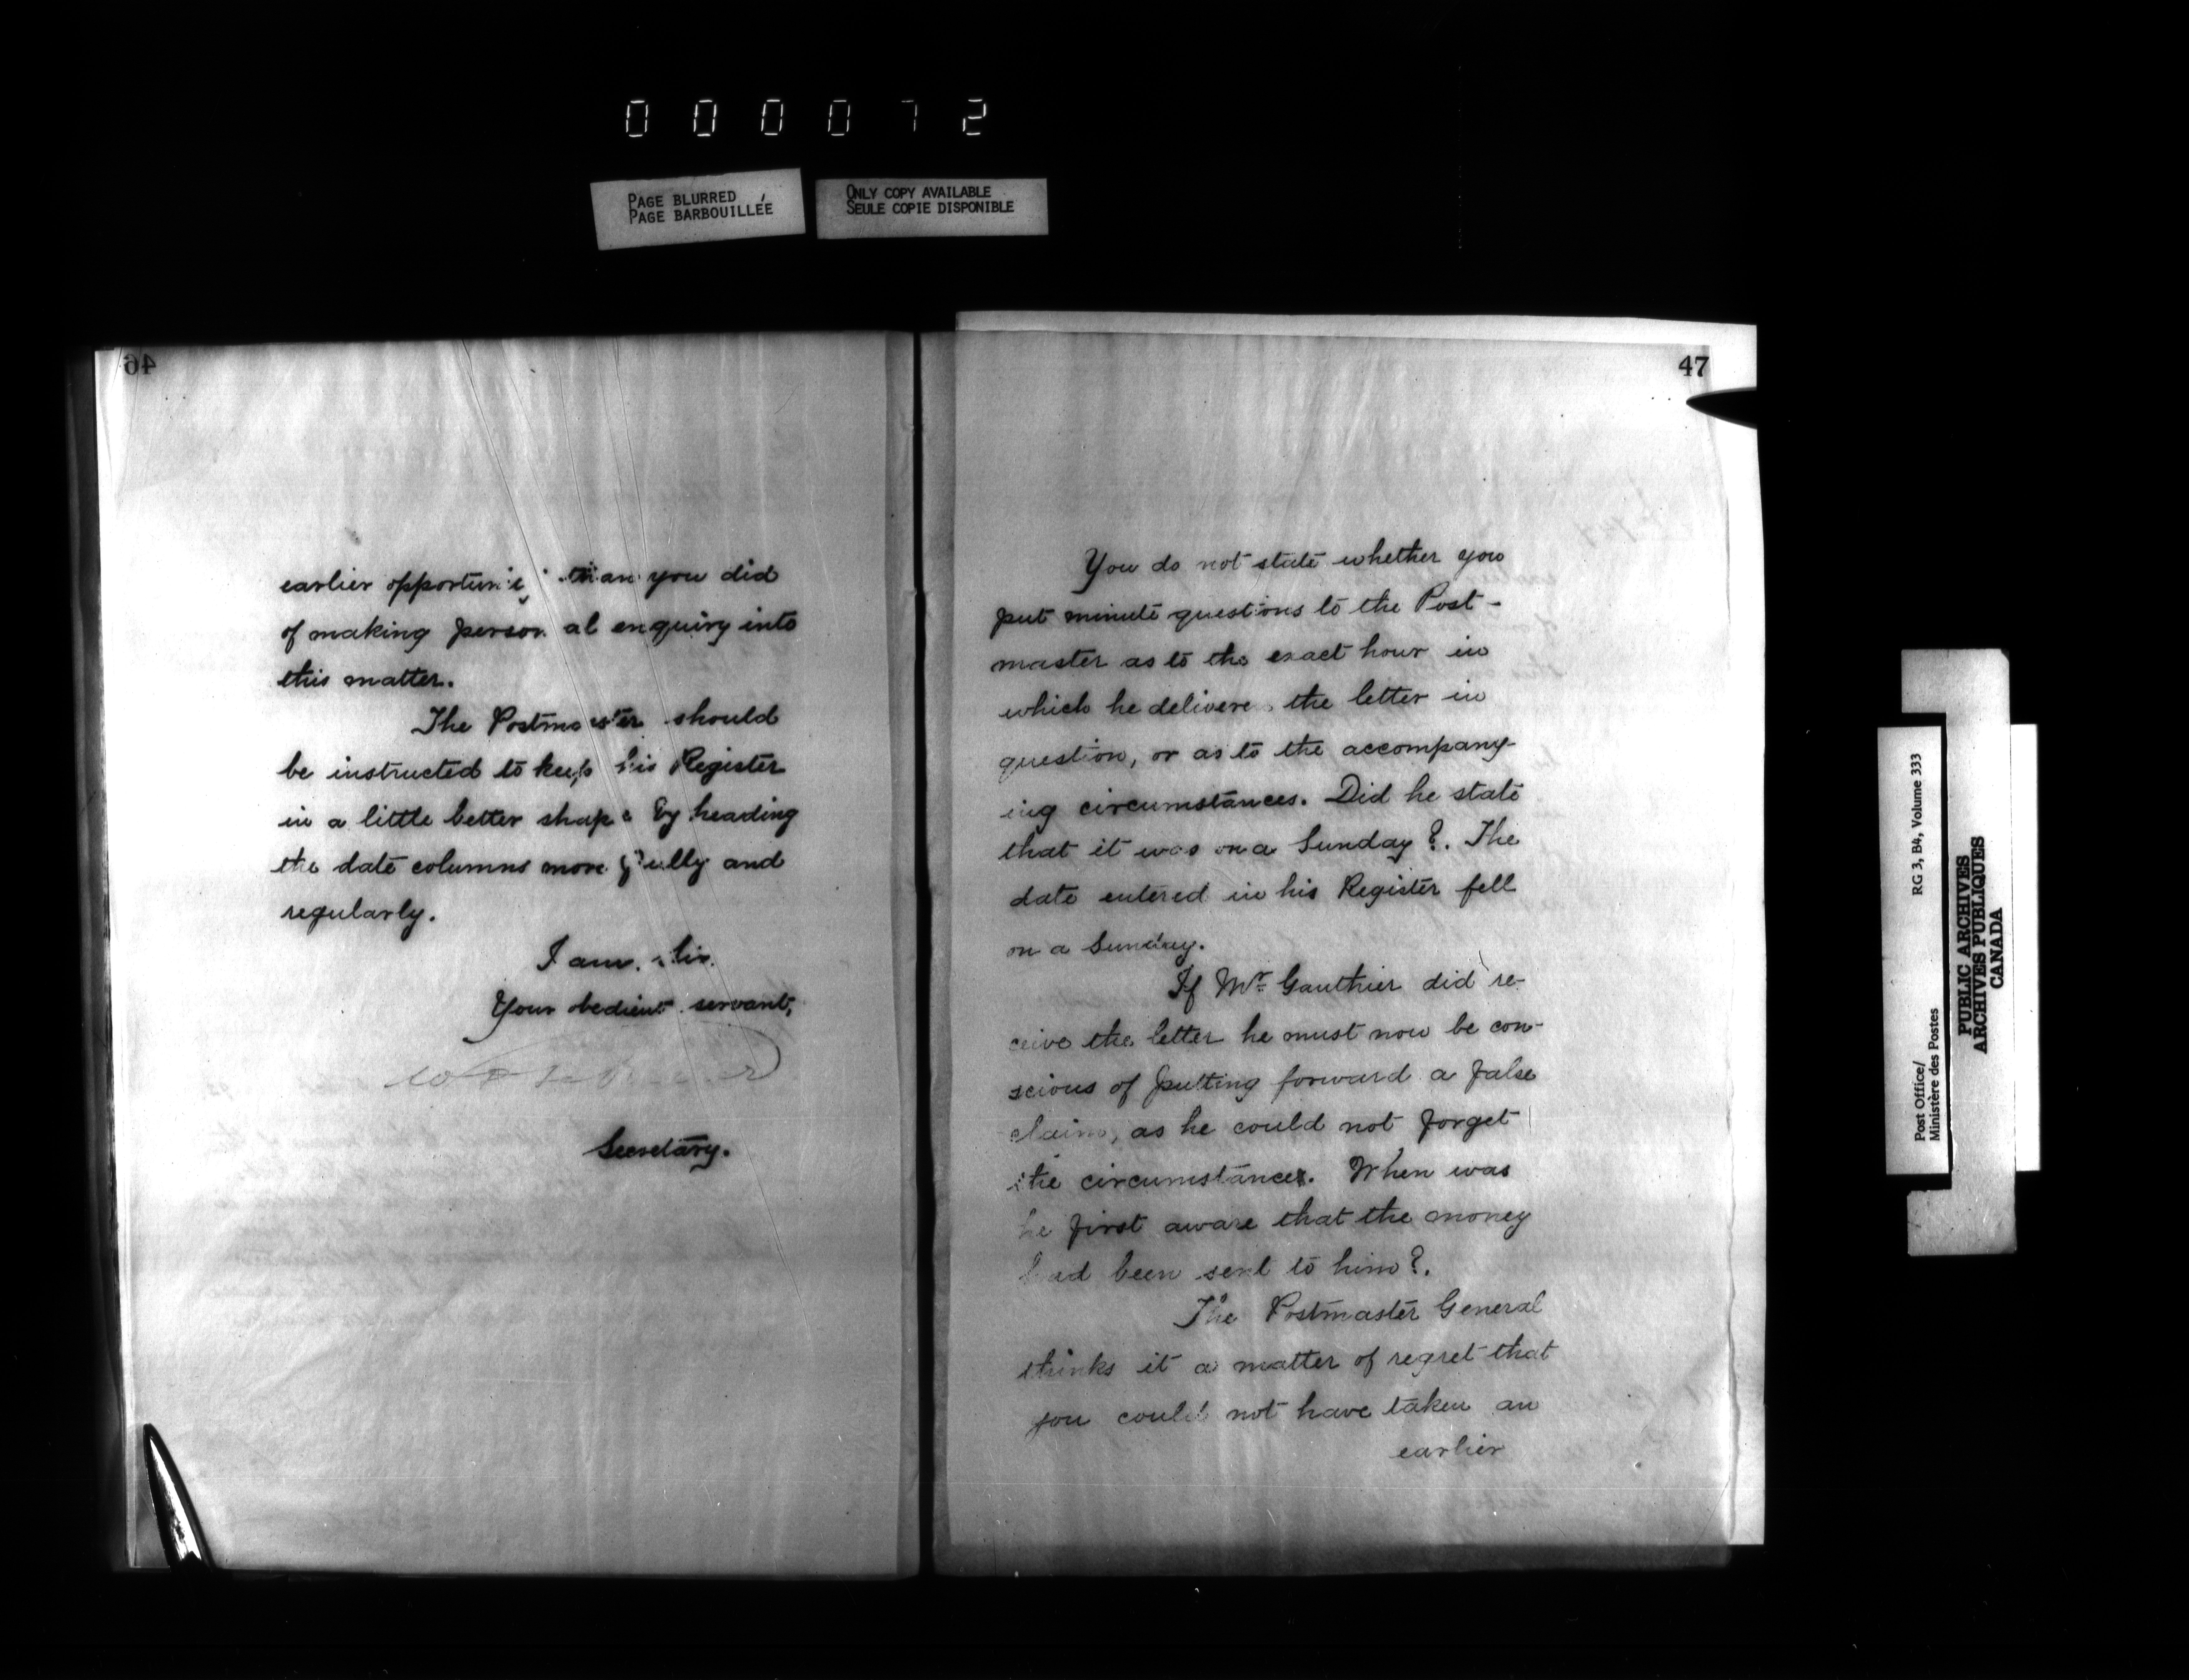 000072
PAGE BLURRED
PAGE BARBOUILLÉE
ONLY COPY AVAILABLE
SEULE COPIE DISPONIBLE
46
earlier opportuni than you did
of making personal enquiry into
this matter.
The Postmaster should
be instructed to keep his Register
in a little better shape by heading
the date columns more fully and
regularly.
I am, Sir.
Your obedient servant,
Secretary.
47
You do not state whether you
put minute questions to the Post-
master as to the exact hour in
which he delivered the letter in
question, or as to the accompany-
ing circumstances. Did he state
that it was on a Sunday?. The
date entered in his Register fell
on a Sunday.
If Mr Gauthier did re-
ceive the letter he must now be con-
scious of putting forward a false
claim, as he could not forget
the circumstances. When was
he first aware that the money
had been sent to him?.
The Postmaster General
thinks it a matter of regret that
you could not have taken an
earlier
Post Office/
Ministère des Postes
RG 3, B4, Volume 333
PUBLIC ARCHIVES
ARCHIVES PUBLIQUES
CANADA